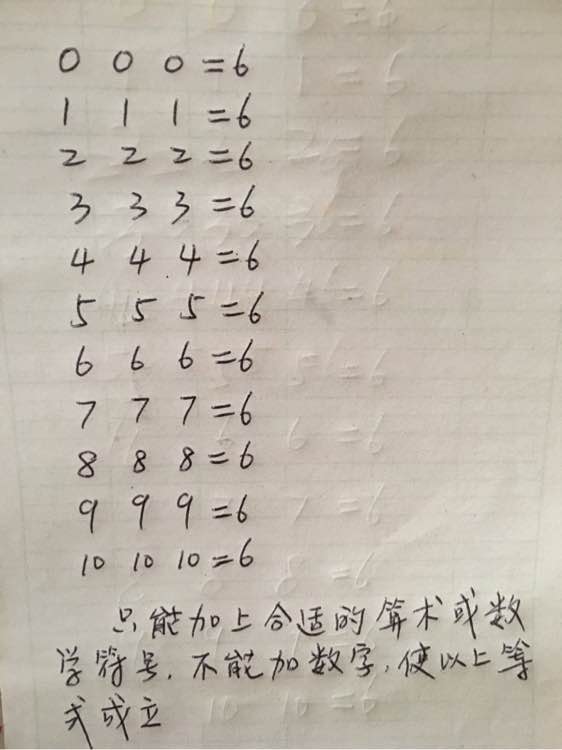 0 0 0 =6
1 1 1 =6
2 2 2 =6
3 3 3 =6
4 4 4 =6
5 5 5 =6
6 6 6 =6
7 7 7 =6
8 8 8 =6
9 9 9 =6
10 10 10 =6
只能加上合适的算术或数
学符号,不能加数字,使以上等
式成立